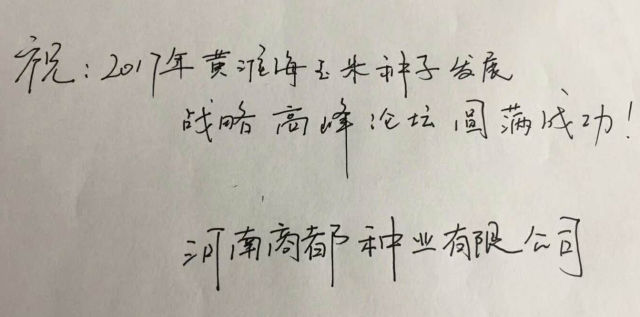 祝:2017年黄淮海玉米种子发展
战略高峰论坛圆满成功!
河南商都种业有限公司